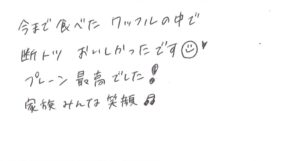 今まで食べた ワッフルの中で
断トツ おいしかったです☺♥
プレーン 最高でした！
家族 みんな 笑顔♫